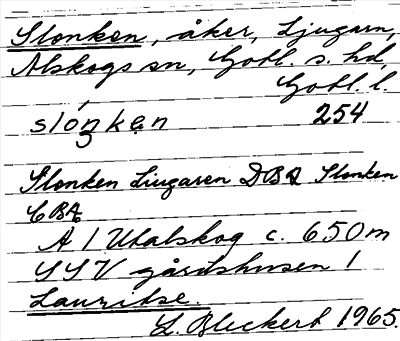 Slonken, åker, Ljugarn,
Alskogs sn, Gotl. s. hd,
Gotl. l.
slóŋken 254
Slonken Ljugaren DBA Slonken
CBA
Å 1 Utalskog c. 650m
SSV gårdshusen 1
Lauritse.
L. Bleckert 1965.